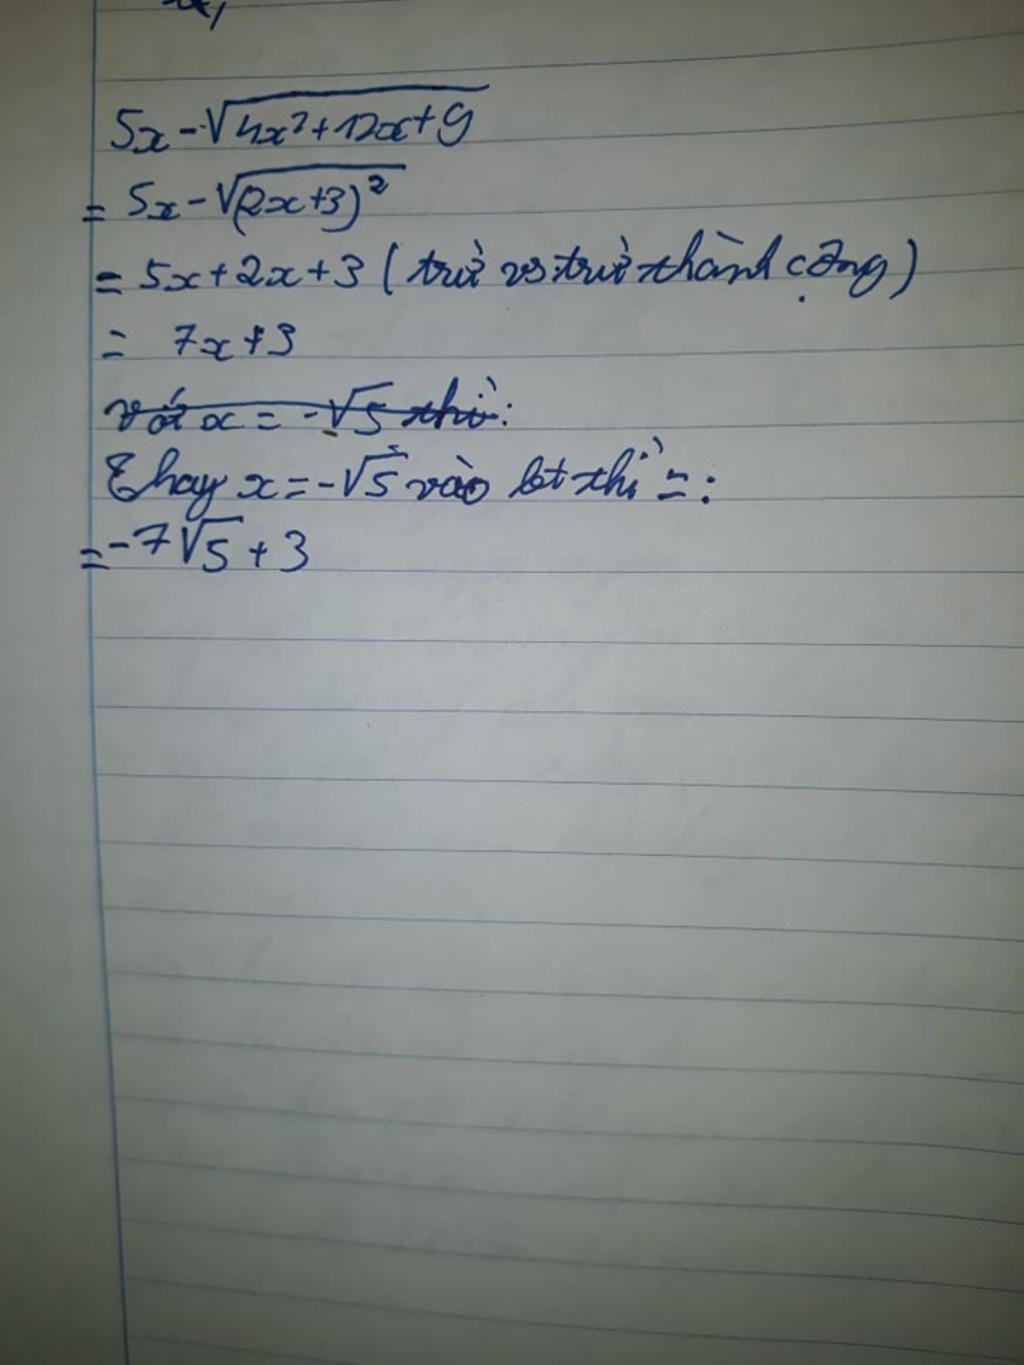 5x - √(4x² + 12x + 9)
= 5x - √(2x+3)²
= 5x + 2x + 3 ( trừ vs trừ thành cộng )
= 7x + 3
với x = -√5 thì :
Thay x = -√5 vào bt thì = :
= -7√5 + 3